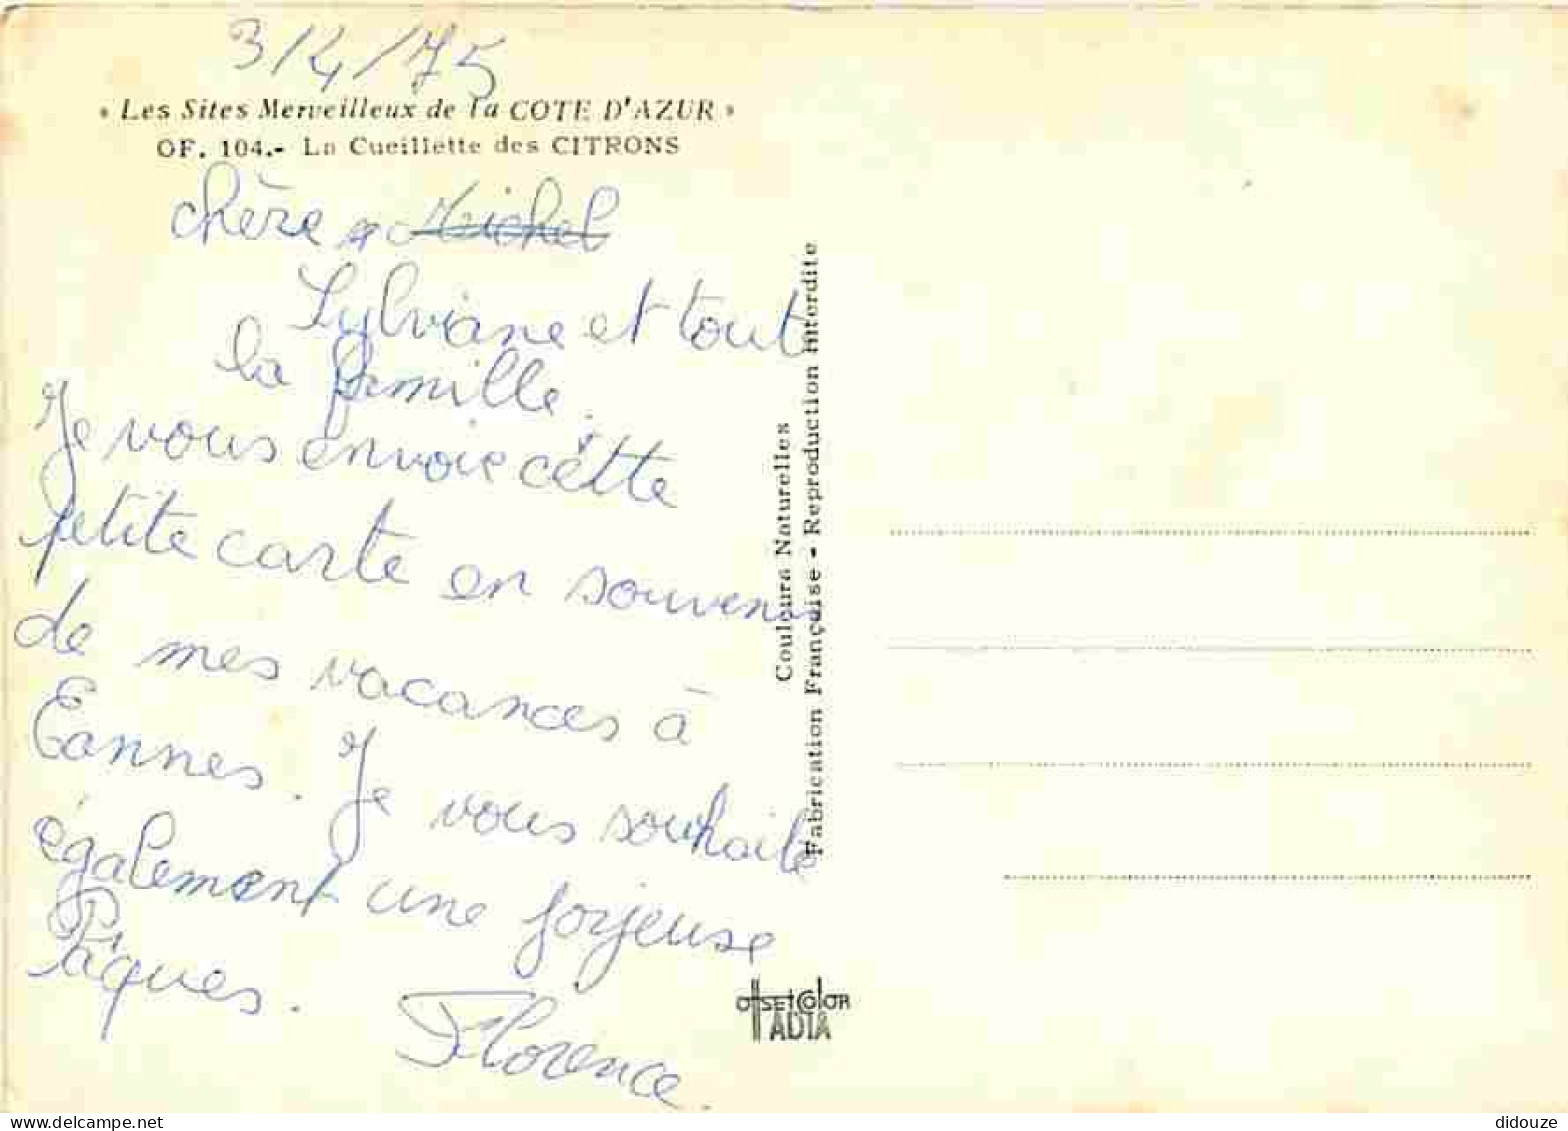 3/4/75
« Les Sites Merveilleux de la COTE D'AZUR »
OF. 104.- La Cueillette des CITRONS
chère Michel
Sylviane et tout
la famille.
Je vous envoie cètte
petite carte en souvenir
de mes vacances à
Cannes. Je vous souhaite
également une forjeuse
Pâques.
Florence.
Couleurs Naturelles
Fabrication Française - Reproduction Interdite
OffsetColor
ADIA
didouze